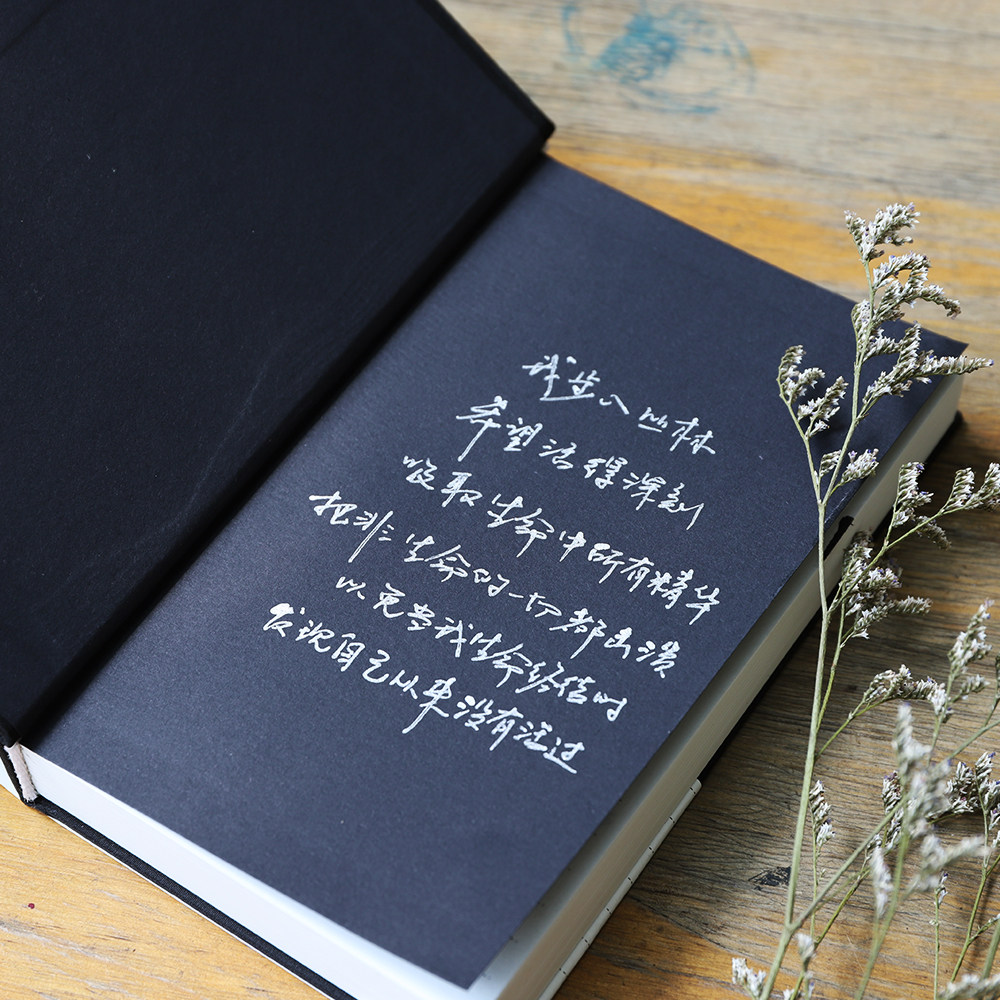 我步入丛林
希望活得深刻
吸取生命中所有精华
把非生命的一切都击溃
以免当我生命终结时
发现自己从来没有活过